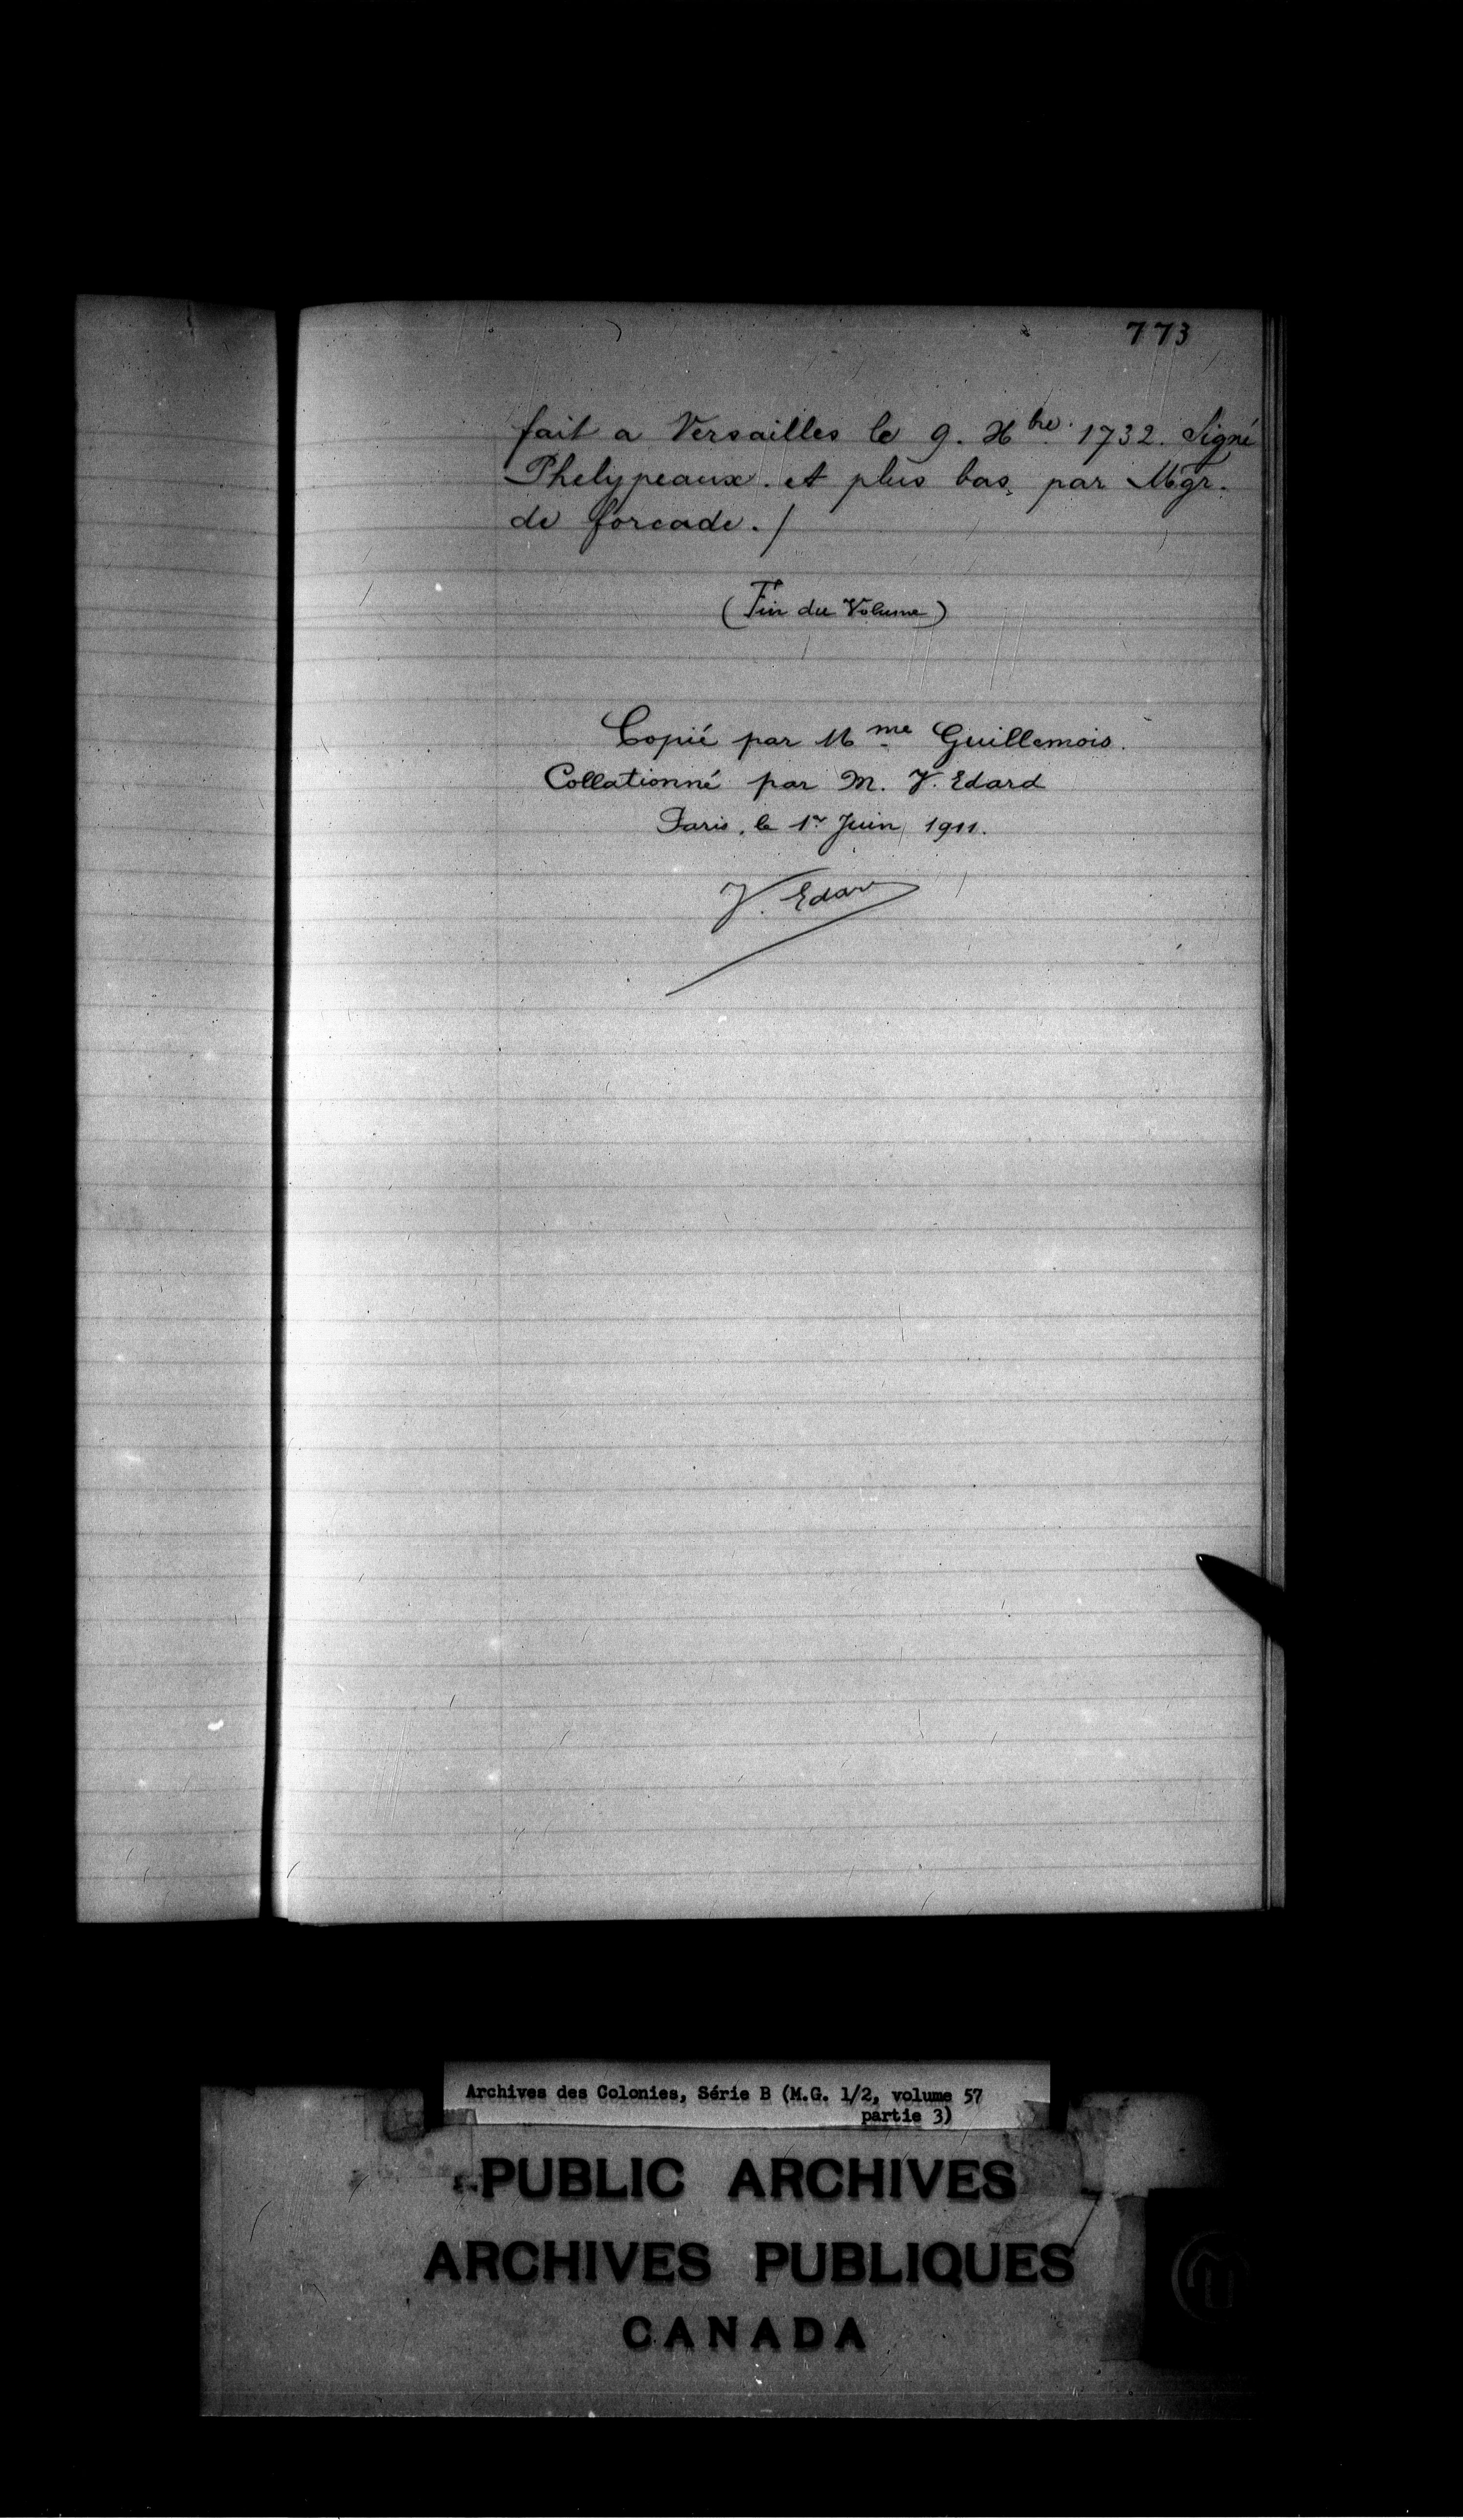 773
fait a Versailles le 9. Xbre. 1732. Signé
Phelypeaux. et plus bas, par Mgr.
de forcade. /
(Fin du Volume)
Copié par Mme Guillemois.
Collationné par M. V. Edard
Paris, le 1er Juin, 1911.
V. Edard
Archives des Colonies, Série B (M.G. 1/2, volume 57
partie 3)
PUBLIC ARCHIVES
ARCHIVES PUBLIQUES
CANADA